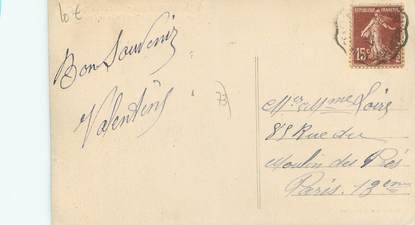 10 €
Bon Souvenir
Valentine
75
REPUBLIQUE FRANÇAISE
15c
Mer Mme Loire
85 Rue du
Moulin des Prés
Paris 13eme